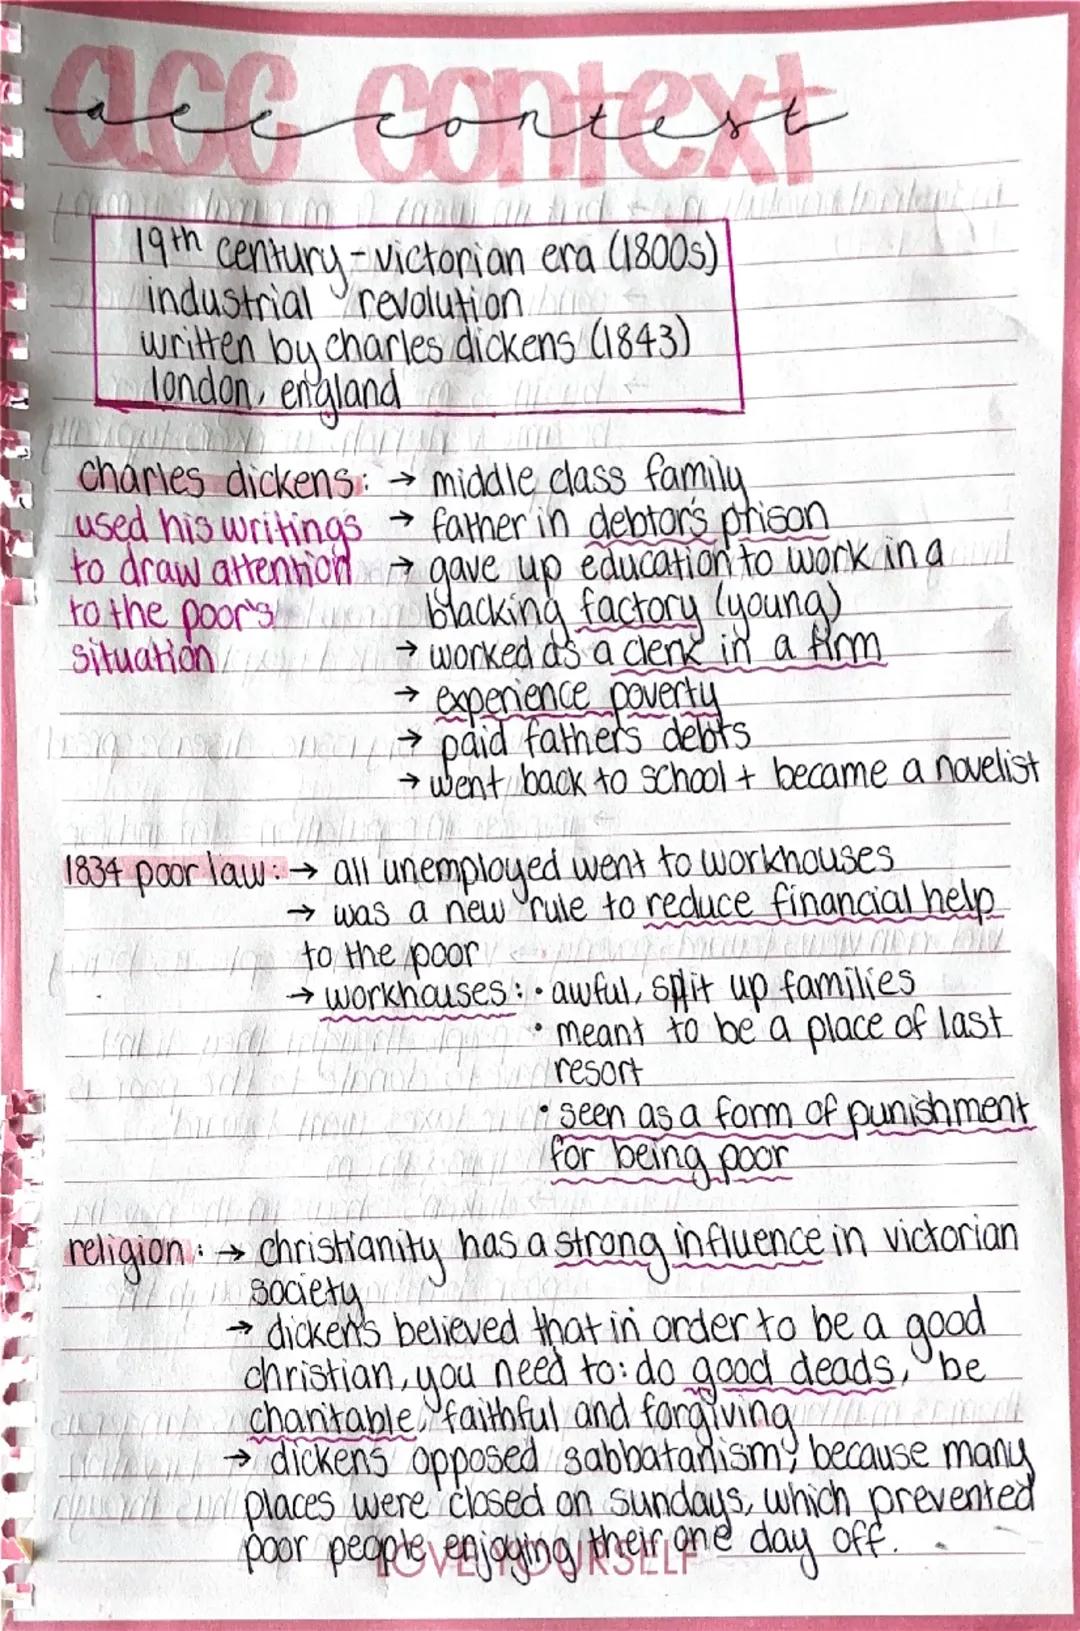 acc context
acc context
19th century - victorian era (1800s)
industrial revolution
written by charles dickens (1843)
london, england
charles dickens: → middle class family
used his writings → father in debtor's prison
to draw attention → gave up education to work in a
to the poor's blacking factory (young)
situation → worked as a clerk in a firm
→ experience poverty
→ paid fathers debts
→ went back to school + became a novelist
1834 poor law: → all unemployed went to workhouses
→ was a new rule to reduce financial help
to the poor
→ workhouses: • awful, split up families
• meant to be a place of last
resort
• seen as a form of punishment
for being poor
religion: → christianity has a strong influence in victorian
society
→ dickens believed that in order to be a good
christian, you need to: do good deads, be
charitable, faithful and forgiving
→ dickens opposed sabbatanism, because many
places were closed on sundays, which prevented
poor people enjoying their one day off.
LOVE YOURSELF